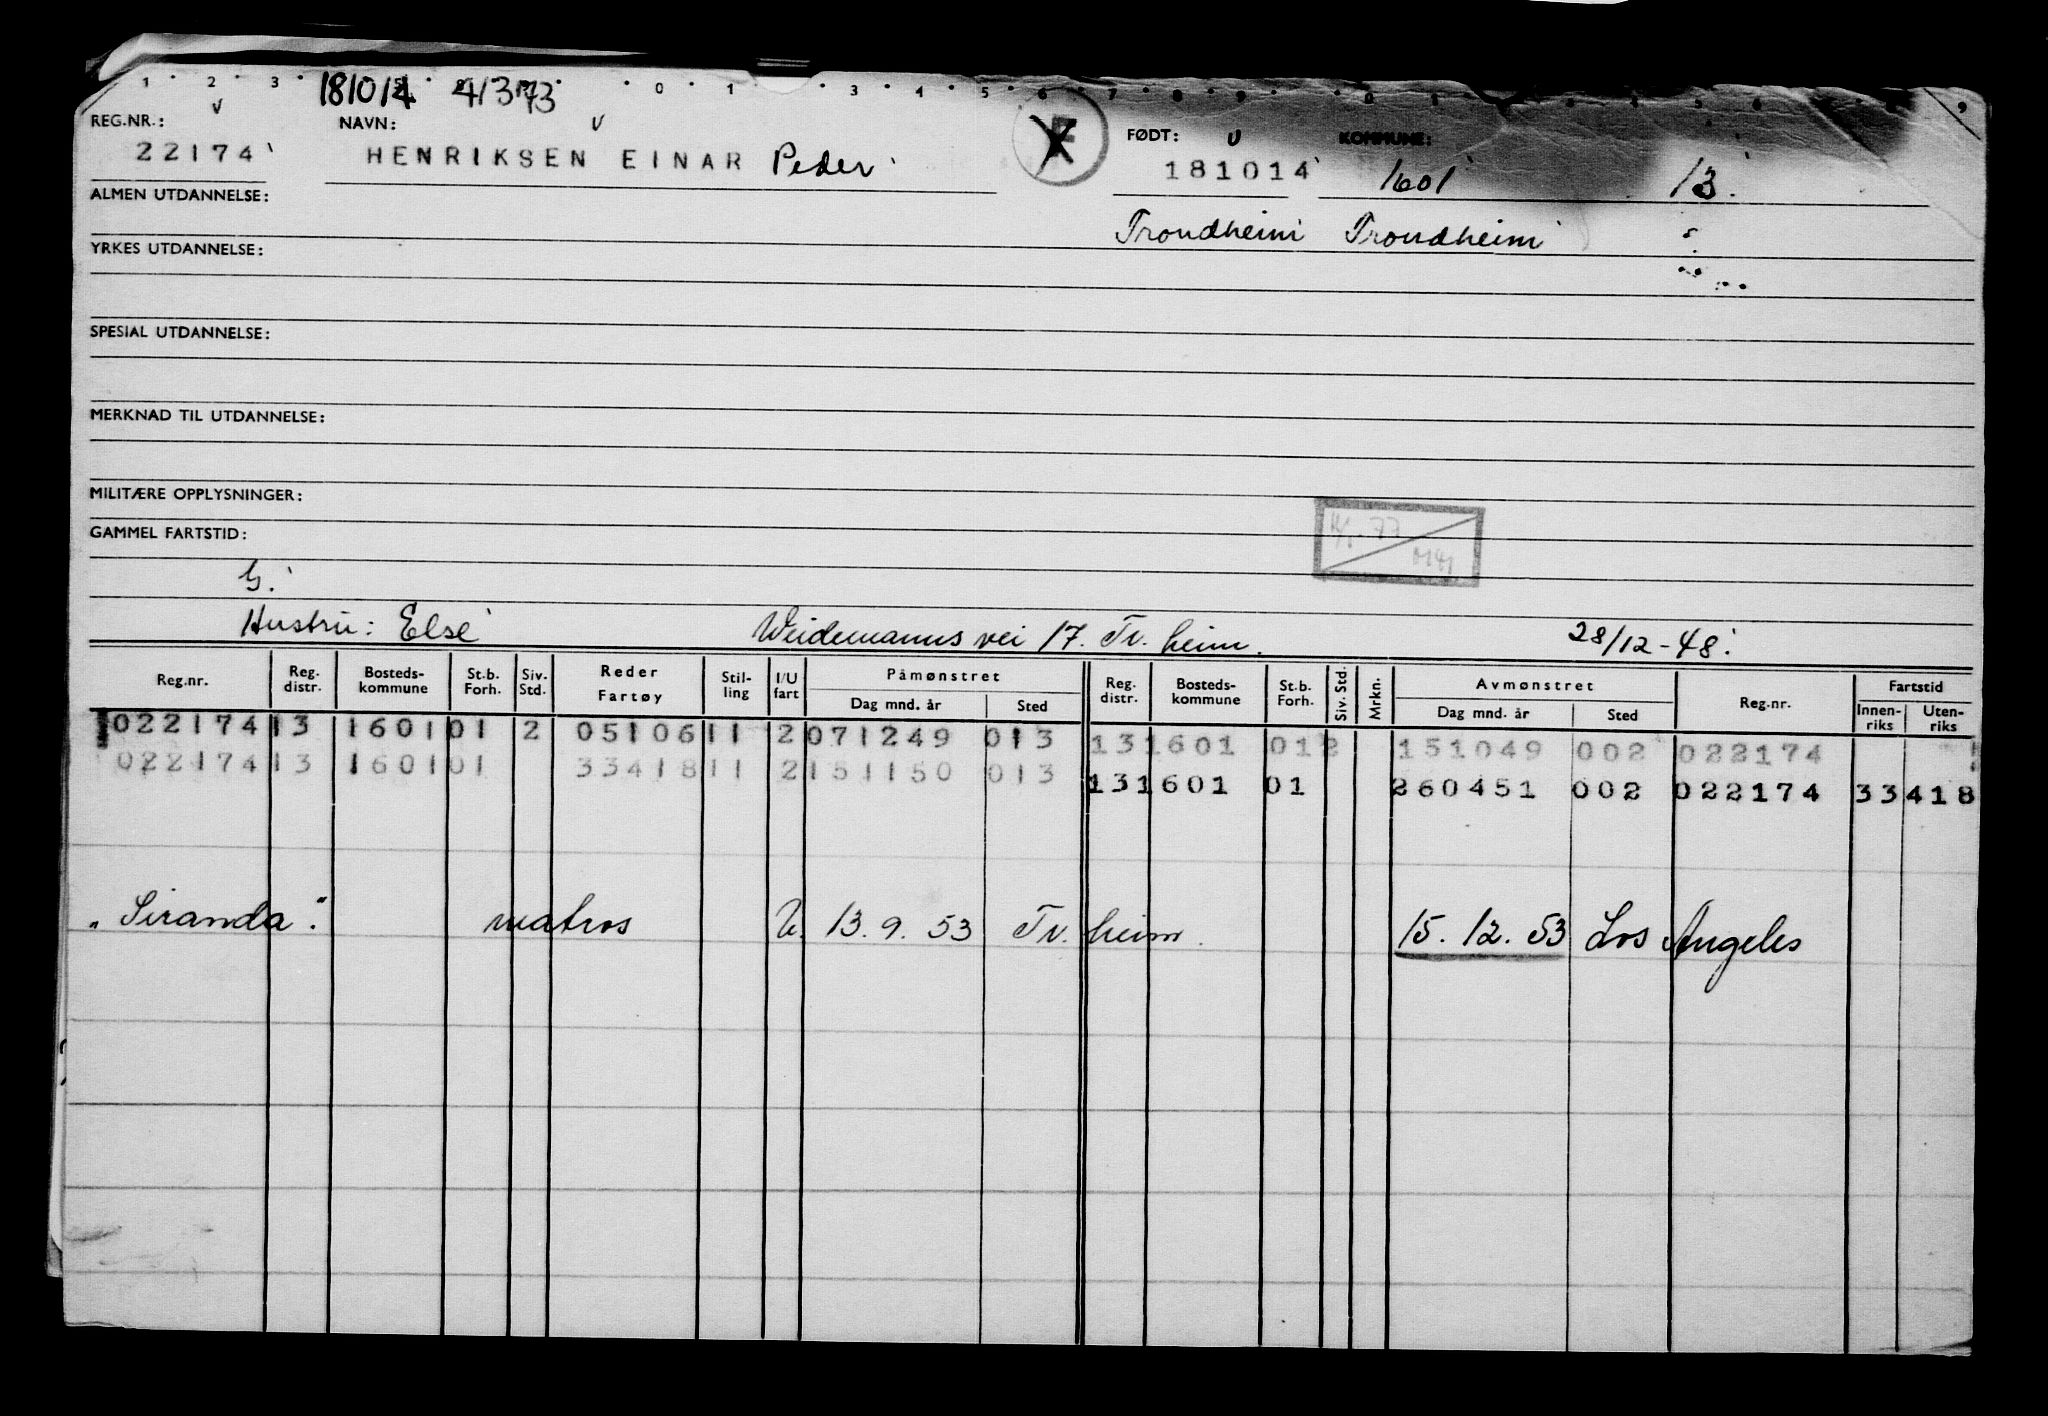 1 2 3 181014 41373 0 1 3 4 5 6 7 8 9 0 9
REG.NR.: NAVN: FØDT: KOMMUNE:
22174 HENRIKSEN EINAR Peder F 181014 1601 13.
ALMEN UTDANNELSE:
Trondheim Trondheim
YRKES UTDANNELSE:
SPESIAL UTDANNELSE:
MERKNAD TIL UTDANNELSE:
MILITÆRE OPPLYSNINGER:
GAMMEL FARTSTID:
G.
Hustru: Else Weidemanns vei 17. Tr. heim. 28/12-48.
Reg.nr. Reg. distr. Bosteds-kommune St.b. Forh. Siv. Std. Reder Fartøy Stil-ling I/U fart Påmønstret Dag mnd. år Sted Reg. distr. Bosteds-kommune St.b. Forh. Siv. Std. Mrkn. Avmønstret Dag mnd. år Sted Reg.nr. Fartstid Innen-riks Uten-riks
022174 13 1601 01 2 05106 11 2 071249 013 13 1601 01 2 151049 002 022174
022174 13 1601 01 33418 11 2 151150 013 13 1601 01 260451 002 022174 33418
"Siranda". matros U. 13.9.53 Tr. heim. 15.12.53 Los Angeles